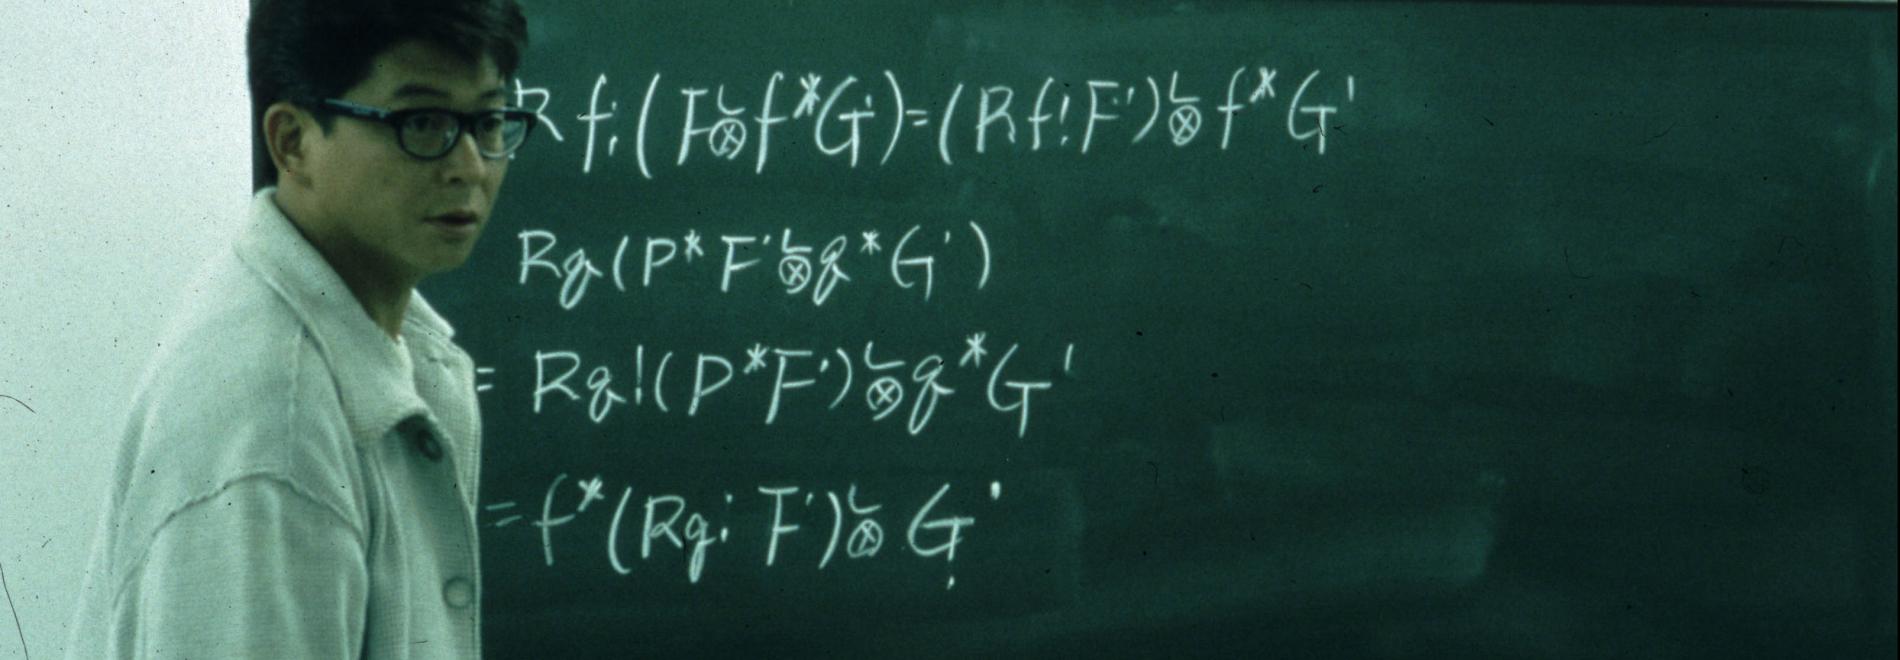 R f! (F ⊗ᴸ f* G˙) = (R f! F˙) ⊗ᴸ f* G'
Rg (P* F˙ ⊗ᴸ g* G˙)
= Rg! (P* F˙) ⊗ᴸ g* G'
= f* (Rg! F˙) ⊗ᴸ G˙